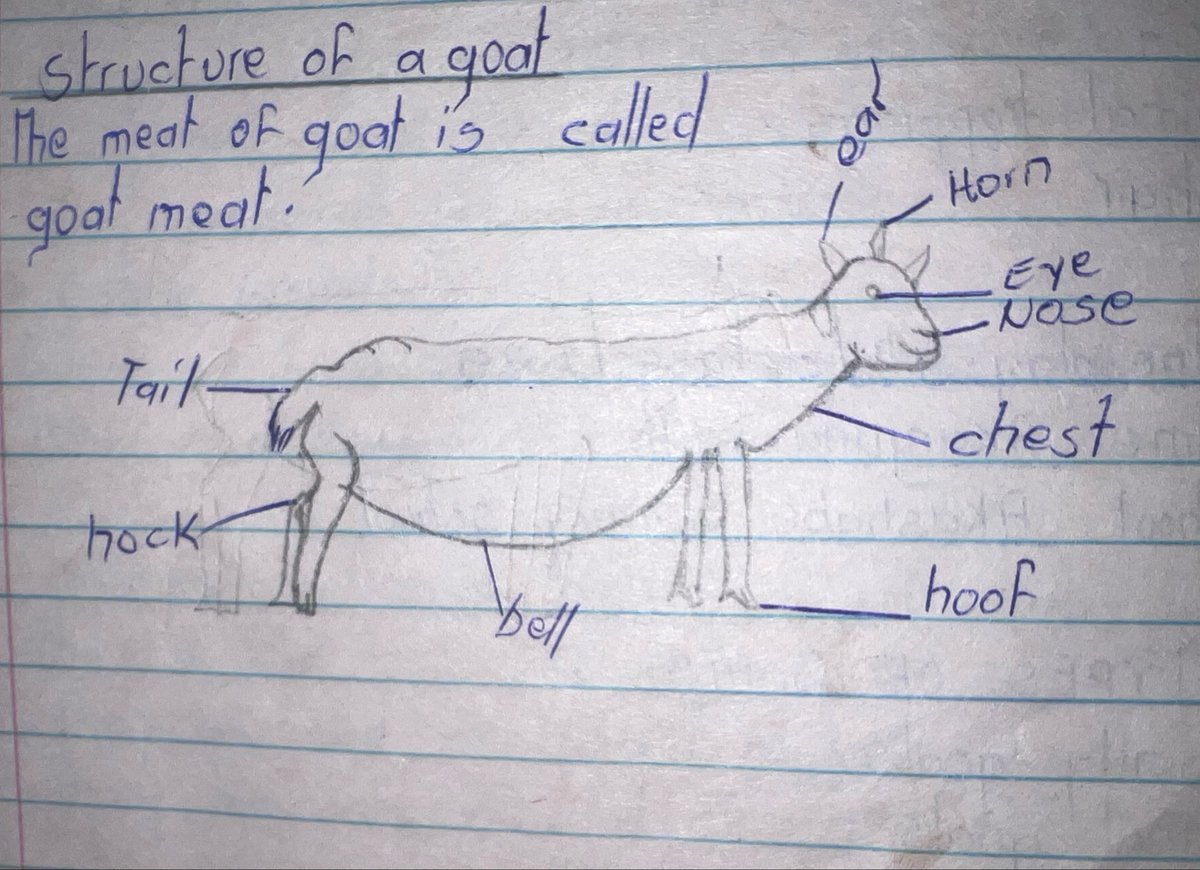 Structure of a goat
The meat of goat is called
goat meat.
ear
Horn
Eye
Nose
Tail
chest
hock
hoof
bell